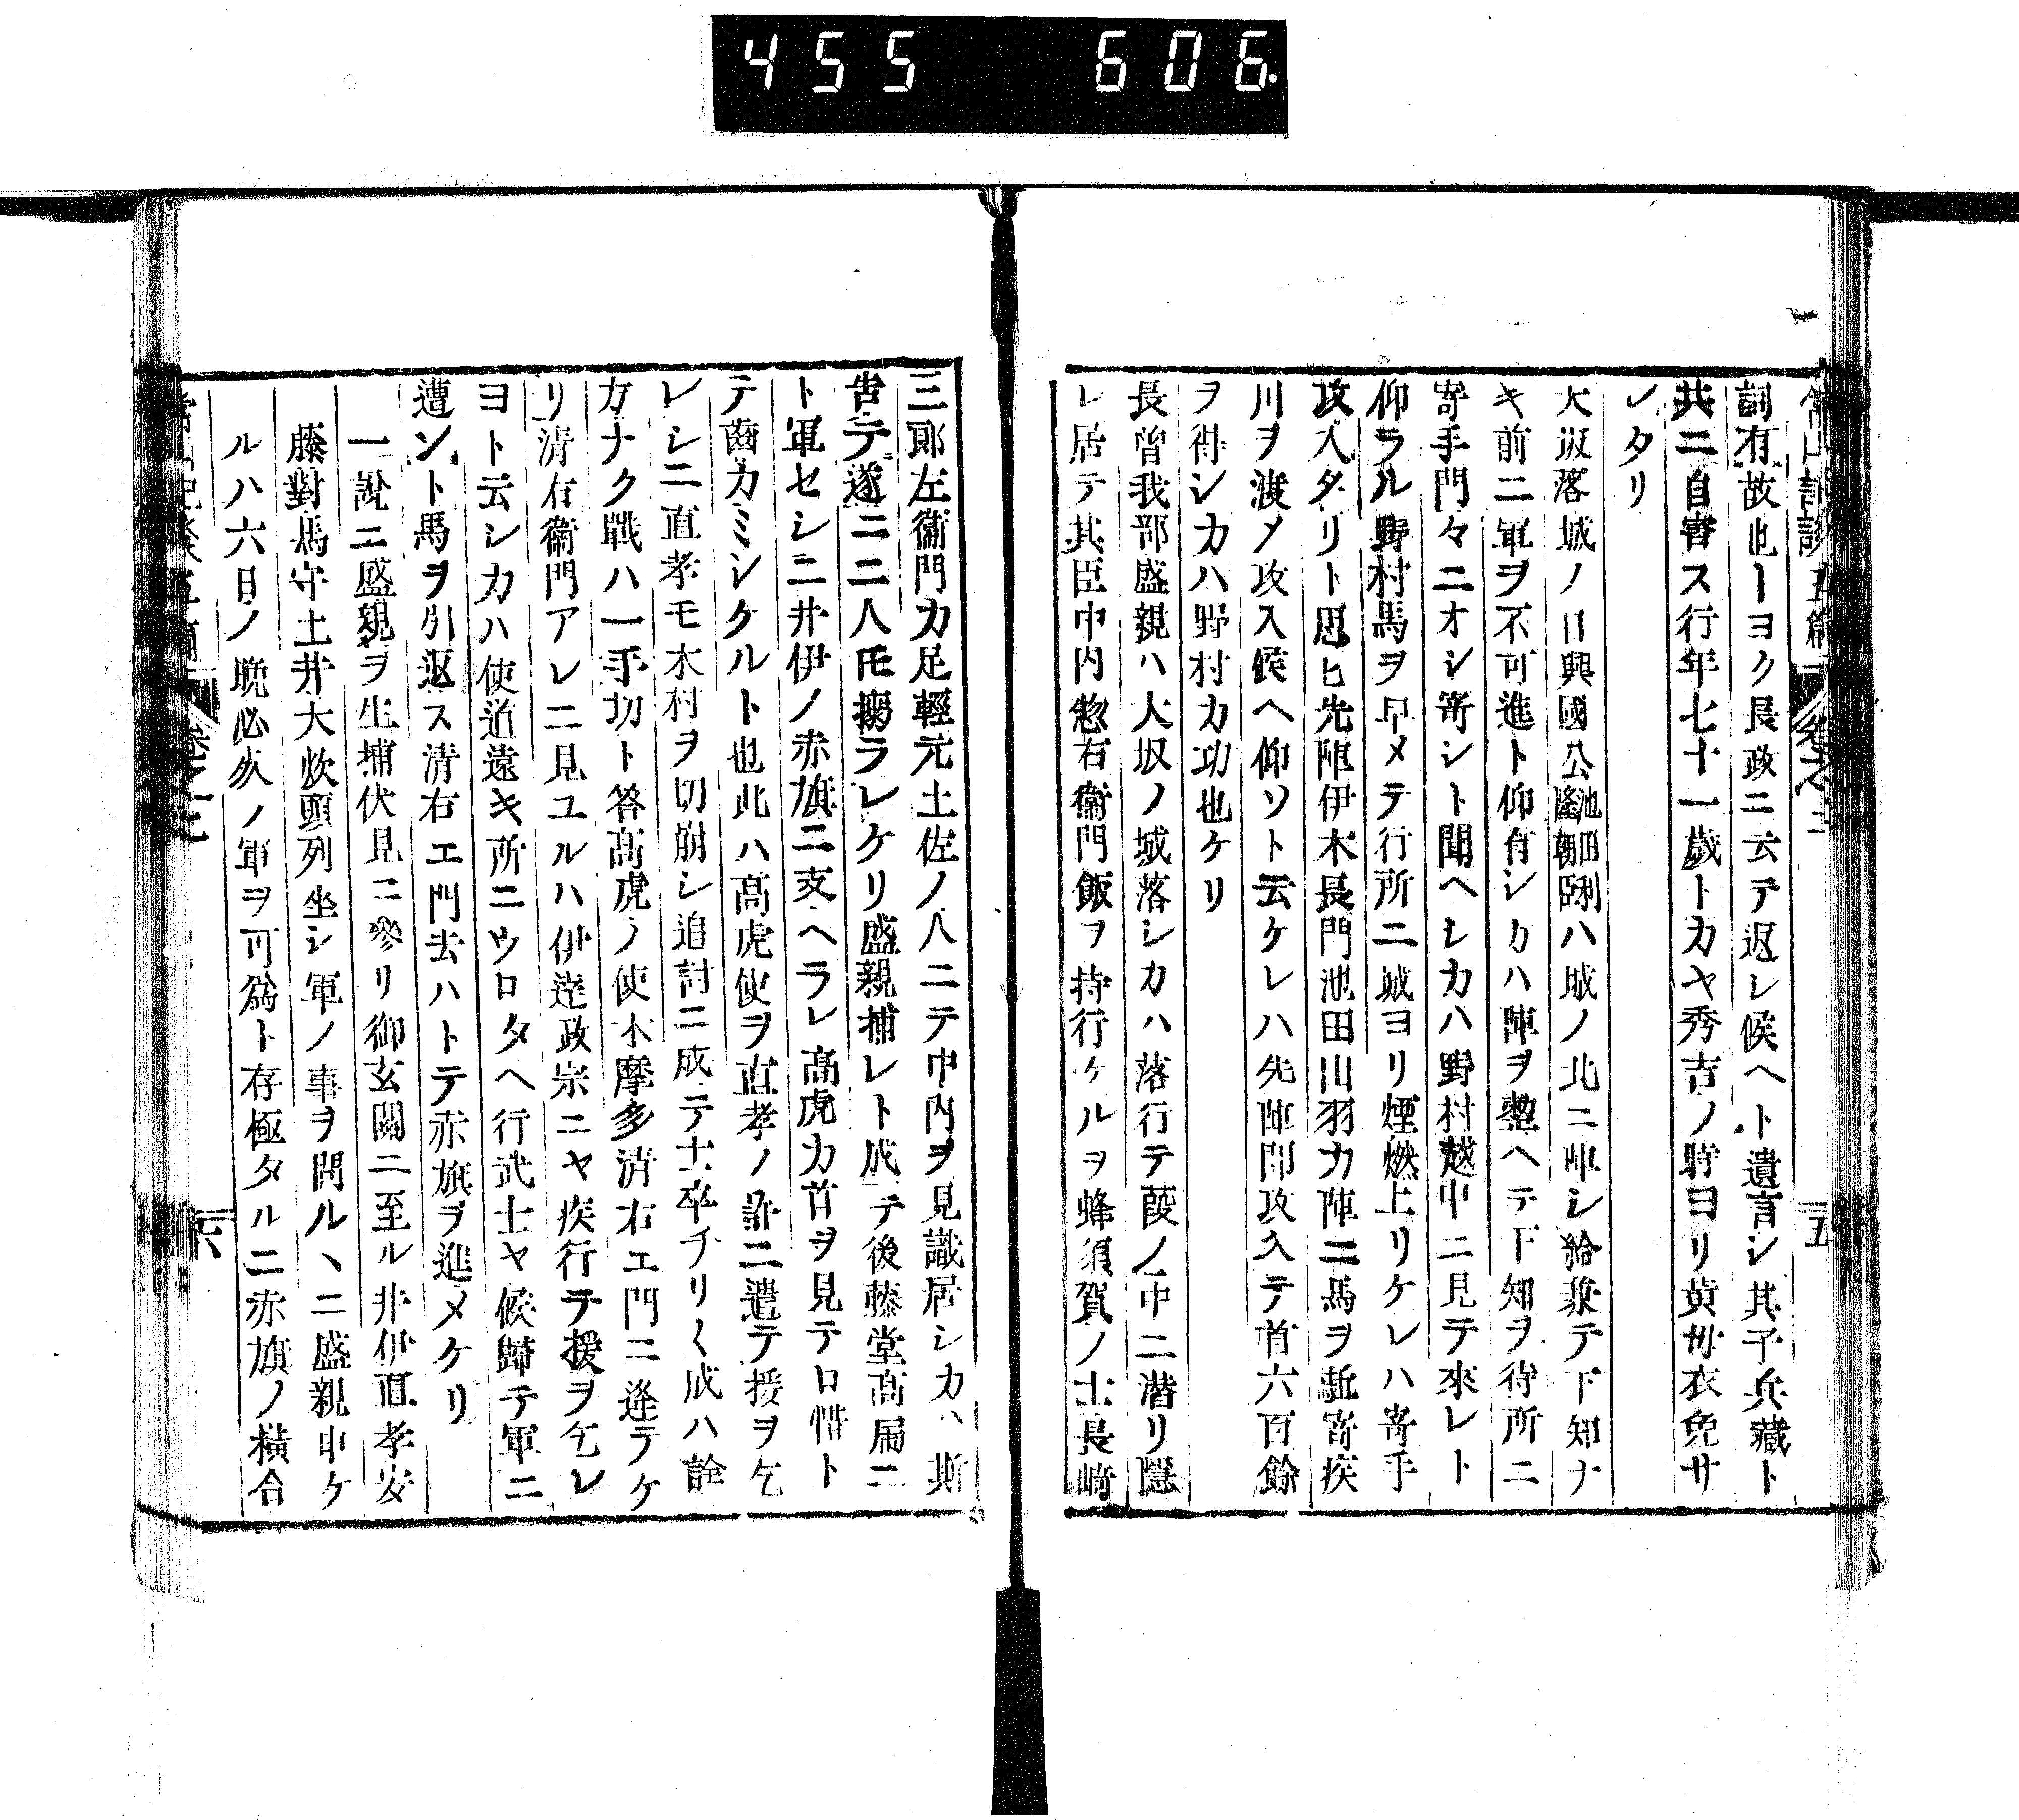 455 606
常山紀談五篇 卷之三 五
詞有故也ーヨク長政ニ云テ返レ候ヘト遺言シ其子兵藏ト
共ニ自害ス行年七十一歳トカヤ秀吉ノ時ヨリ黄母衣免サ
レタリ
大坂落城ノ日興國公池田利隆朝臣ハ城ノ北ニ陣シ給兼テ下知ナ
キ前ニ軍ヲ不可進ト仰有シカハ陣ヲ整ヘテ下知ヲ待所ニ
寄手門々ニオシ寄シト聞ヘシカハ野村越中ニ見テ來レト
仰ラル野村馬ヲ早メテ行所ニ城ヨリ煙燃上リケレハ寄手
攻入タリト思ヒ先陣伊木長門池田出羽カ陣ニ馬ヲ馳寄疾
川ヲ渡メ攻入候ヘ仰ソト云ケレハ先陣即攻入テ首六百餘
ヲ得シカハ野村カ功也ケリ
長曾我部盛親ハ大坂ノ城落シカハ落行テ葭ノ中ニ潜リ隠
レ居テ其臣中内惣右衞門飯ヲ持行ケルヲ蜂須賀ノ士長﨑
三郎左衞門カ足輕元土佐ノ人ニテ中内ヲ見識居シカハ斯
吿テ遂ニ二人トモ搦ラレケリ盛親捕レト成テ後藤堂髙虎ニ
ト軍セシニ井伊ノ赤旗ニ支ヘラレ髙虎カ首ヲ見テ口惜ト
テ齒カミシケルト也此ハ髙虎使ヲ直孝ノ許ニ遣テ援ヲ乞
レシニ直孝モ木村ヲ切崩シ追討ニ成テ士卒チリ〱成ハ詮
カナク戰ハ一手切ト答髙虎ノ使木摩多清右エ門ニ逢テケ
リ清右衞門アレニ見ユルハ伊達政宗ニヤ疾行テ援ヲ乞レ
ヨト云シカハ使道遠キ所ニウロタヘ行武士ヤ候歸テ軍ニ
遭ント馬ヲ引返ス清右エ門去ハトテ赤旗ヲ進メケリ
一説ニ盛親ヲ生捕伏見ニ參リ御玄關ニ至ル井伊直孝安
藤對馬守土井大炊頭列坐シ軍ノ事ヲ問ルヽニ盛親申ケ
ルハ六日ノ晩必死ノ軍ヲ可爲ト存極タルニ赤旗ノ横合
卷之三 六